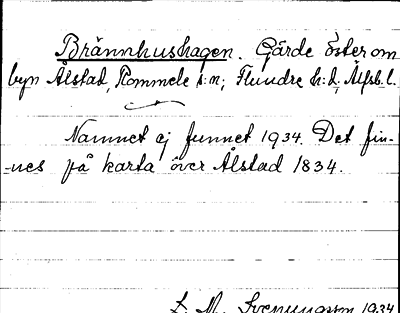 Brännhushagen. Gärde öster om
byn Ålstad, Rommele s:n; Flundre h:d, Älfsb. l.
Namnet ej funnet 1934. Det fin-
nes på karta över Ålstad 1834.
S. M. Svenungsson 1934